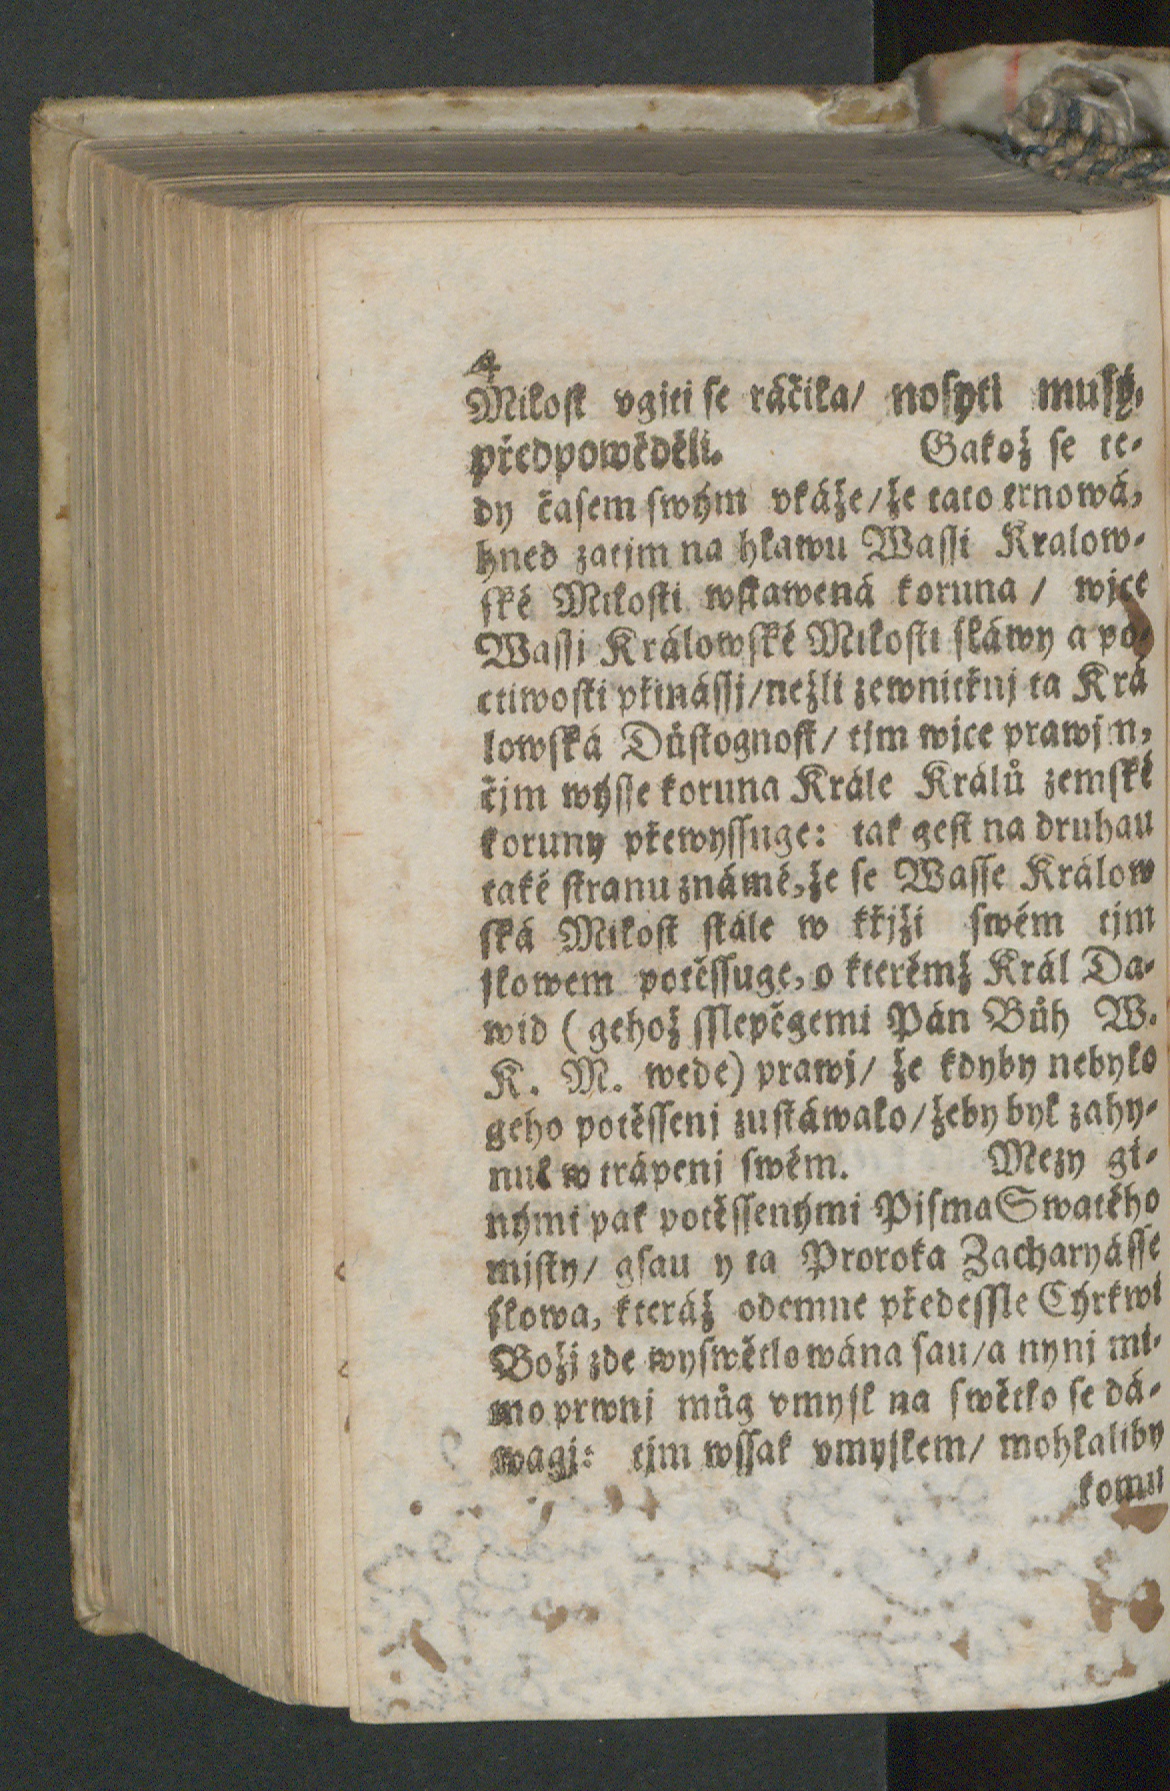 4
Milost vgjti se ráčila/ nosyti musý,
předpowěděli. Gakož se te-
dy časem swým vkáže/že tato trnowá,
hned zatjm na hlawu Wassi Kralow-
ské Milosti wstawená koruna / wjce
Wassi Králowské Milosti sláwy a po-
ctiwosti přinássj/nežli zewnitřnj ta Krá
lowská Důstognost/ tjm wjce prawjm,
čjm wýsse koruna Krále Králů zemské
koruny přewyssuge: tak gest na druhau
také stranu známé, že se Wasse Králow
ská Milost stále w křjži swém tjm
slowem potěssuge, o kterémž Král Da-
wid (gehož sslepěgemi Pán Bůh W.
K. M. wede) prawj/ že kdyby nebylo
geho potěssenj zustáwalo/žeby byl zahy-
nul w trápenj swém. Mezy gi-
nými pak potěssenými Pisma Swatého
mjsty/ gsau y ta Proroka Zacharyásse
slowa, kteráž odemne předessle Cýrkwi
Božj zde wyswětlowána sau/a nynj mi-
mo prwnj můg vmysl na swětlo se dá-
wagj: tjm wssak vmyslem/ mohlaliby
komu